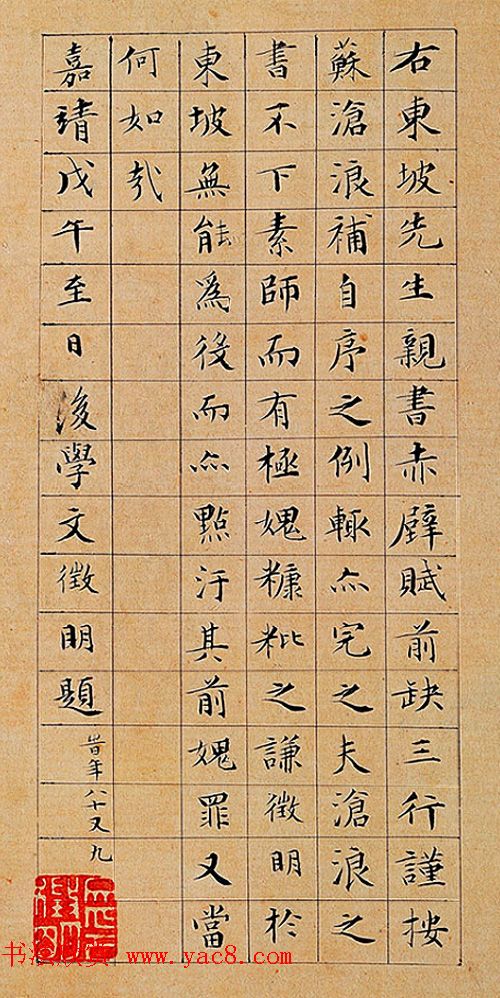 右東坡先生親書赤壁賦前缺三行謹按
蘇滄浪補自序之例輒亦完之夫滄浪之
書不下素師而有極媿糠粃之謙徵明於
東坡無能爲役而亦點汙其前媿罪又當
何如哉
嘉靖戊午至日後學文徵明題 旹年八十又九
书法欣赏 www.yac8.com